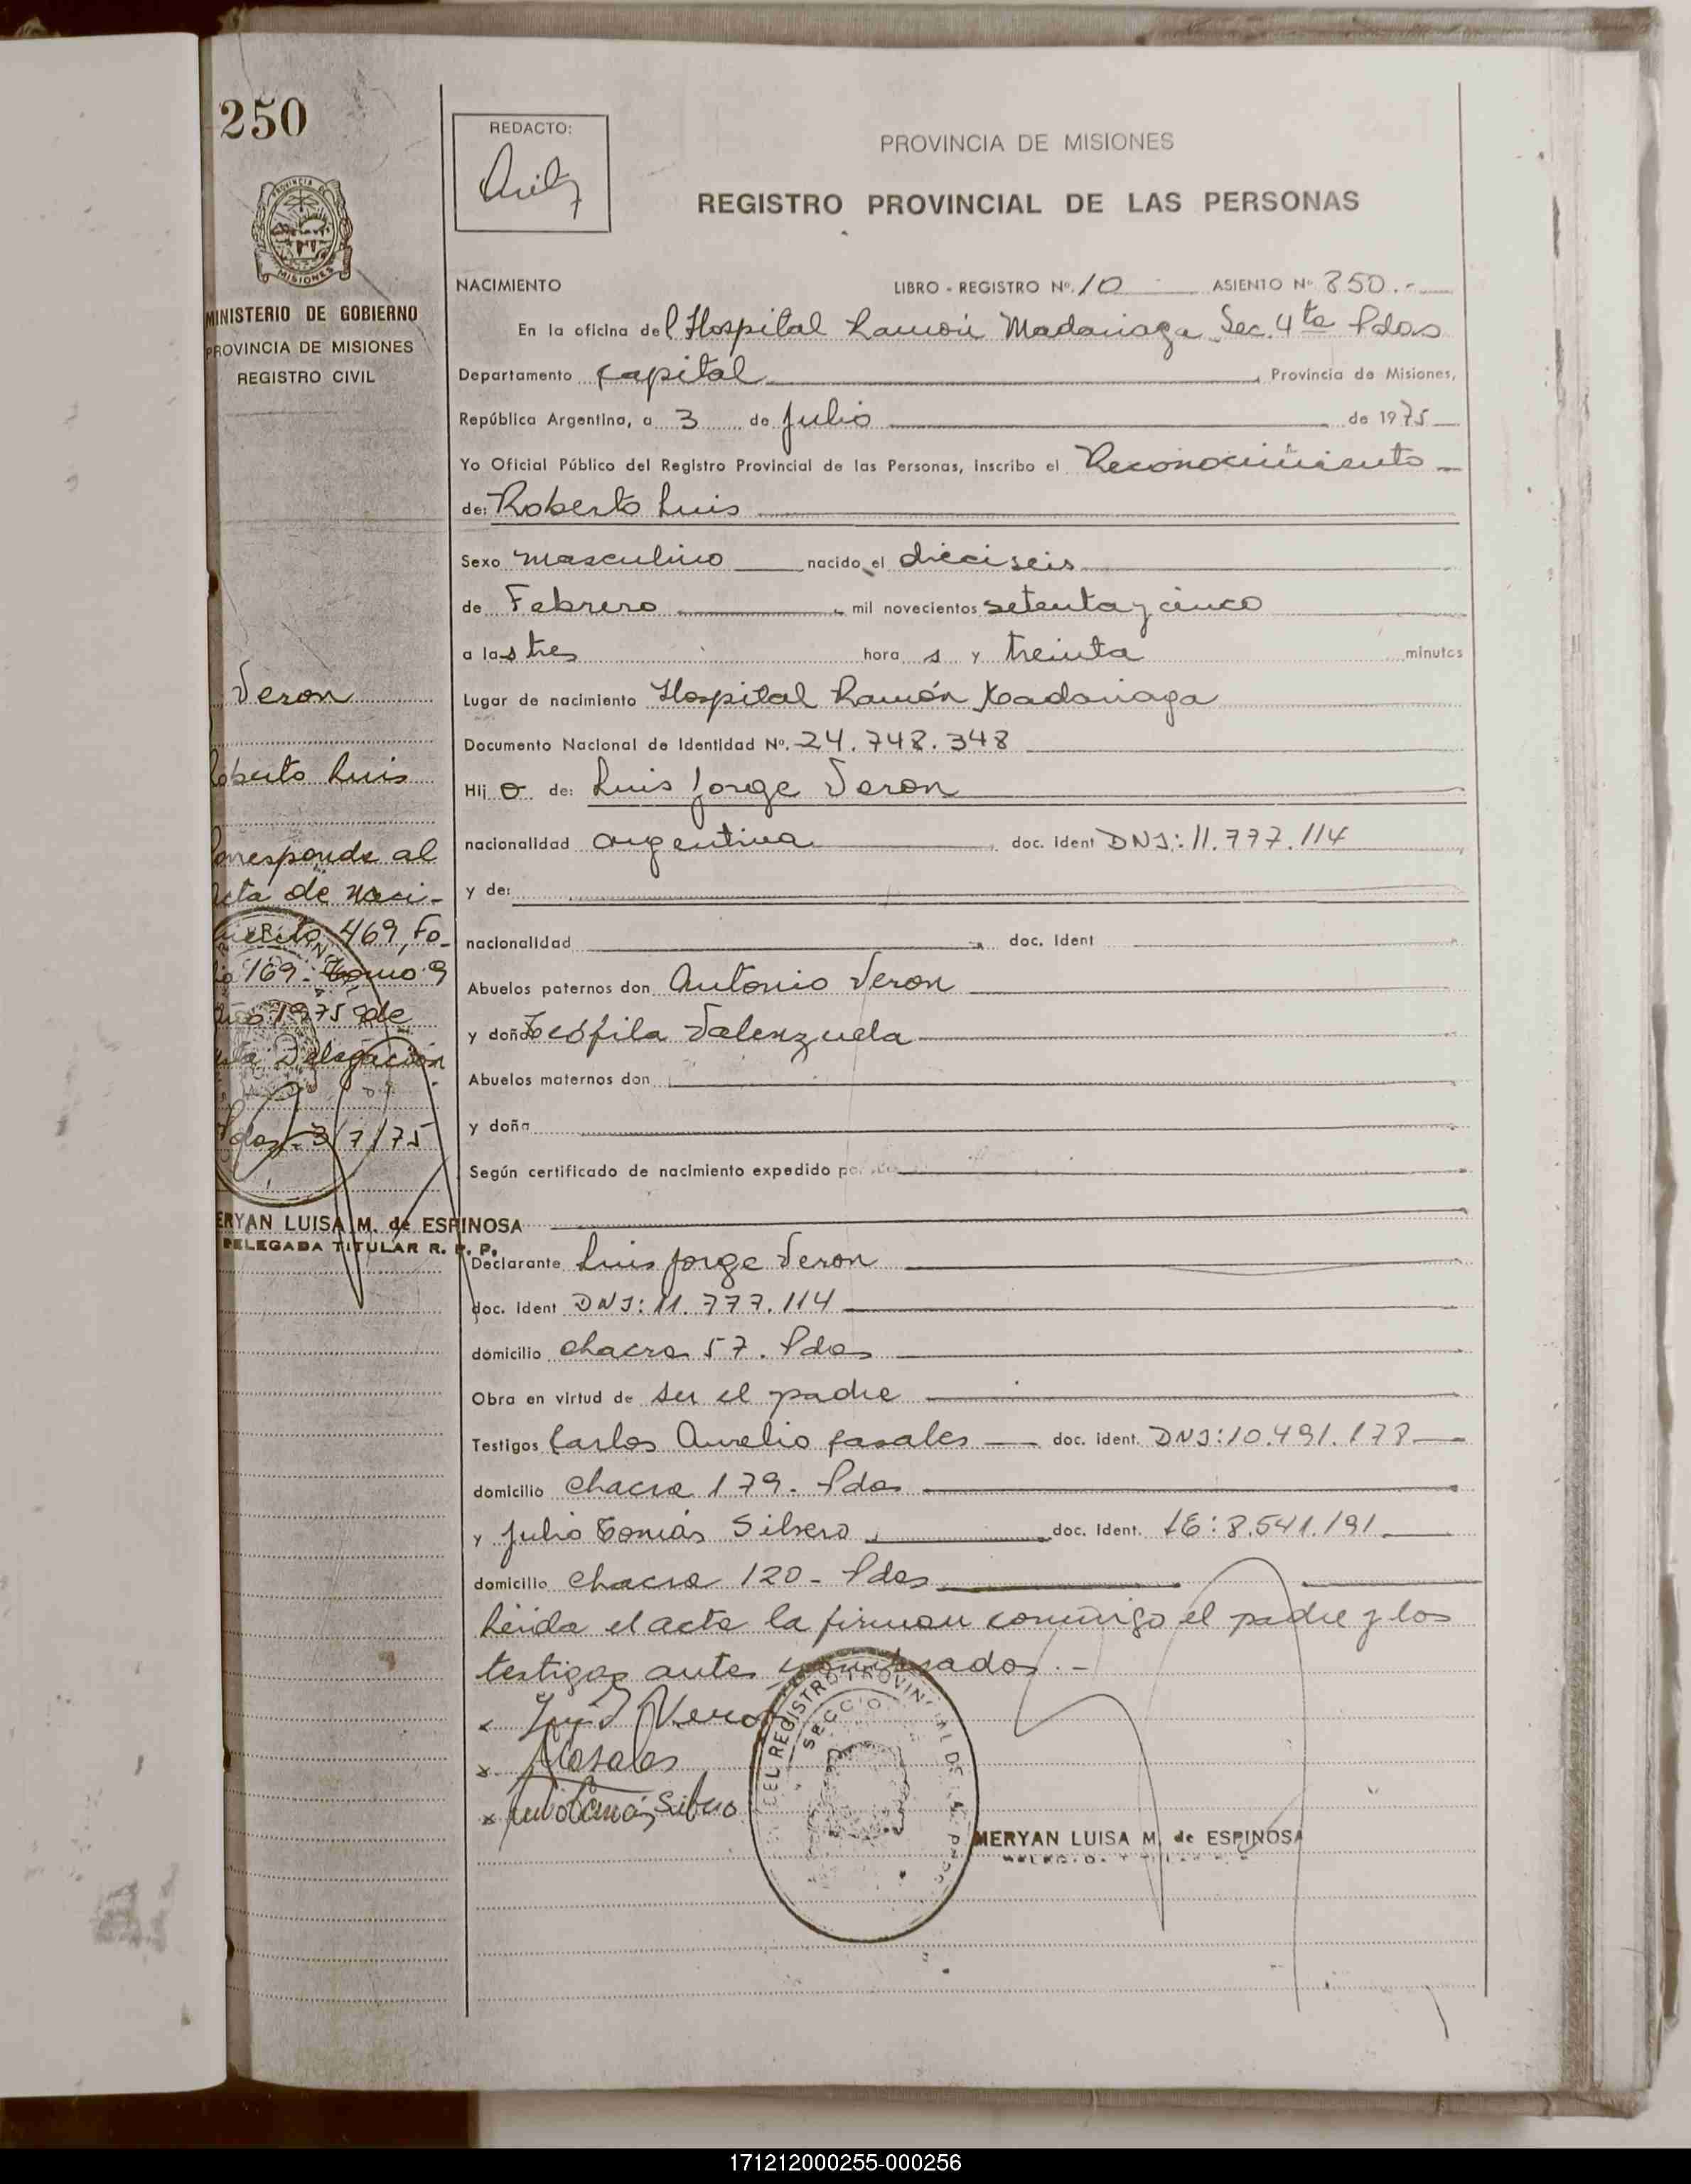 250
PROVINCIA DE
MISIONES
MINISTERIO DE GOBIERNO
PROVINCIA DE MISIONES
REGISTRO CIVIL
Veron
Roberto Luis
Corresponde al
acta de naci-
miento 469, Fo-
lio 169. Tomo 9
año 1975 de
esta Delegación
Pdas. 3/7/75
MERYAN LUISA M. de ESPINOSA
DELEGADA TITULAR R. P. P.
REDACTO:
PROVINCIA DE MISIONES
REGISTRO PROVINCIAL DE LAS PERSONAS
NACIMIENTO LIBRO - REGISTRO Nº. 10 ASIENTO Nº 850.-
En la oficina del Hospital Ramón Madariaga Sec. 4ta Pdas
Departamento Capital Provincia de Misiones,
República Argentina, a 3 de Julio de 1975
Yo Oficial Público del Registro Provincial de las Personas, inscribo el Reconocimiento
de: Roberto Luis
Sexo masculino nacido el dieciseis
de Febrero mil novecientos setenta y cinco
a las tres hora s y treinta minutos
Lugar de nacimiento Hospital Ramón Madariaga
Documento Nacional de Identidad Nº. 24.748.348
Hij o de: Luis Jorge Veron
nacionalidad argentina doc. Ident DNI: 11.777.114
y de:
nacionalidad doc. Ident
Abuelos paternos don Antonio Veron
y doña Teófila Valenzuela
Abuelos maternos don
y doña
Según certificado de nacimiento expedido por
Declarante Luis Jorge Veron
doc. Ident DNI: 11.777.114
domicilio chacra 57. Pdas
Obra en virtud de ser el padre
Testigos Carlos Aurelio Casales doc. ident. DNI: 10.491.178
domicilio chacra 179. Pdas
y Julio Tomás Silvero doc. Ident. LE: 8.541.191
domicilio chacra 120 - Pdas
Leída el acta la firman conmigo el padre y los
testigos antes nombrados.-
x Veron
x
x Julio Tomás Silvero
DEL REGISTRO PROVINCIAL DE LAS PERS
SECCIO
MERYAN LUISA M. de ESPINOSA
171212000255-000256